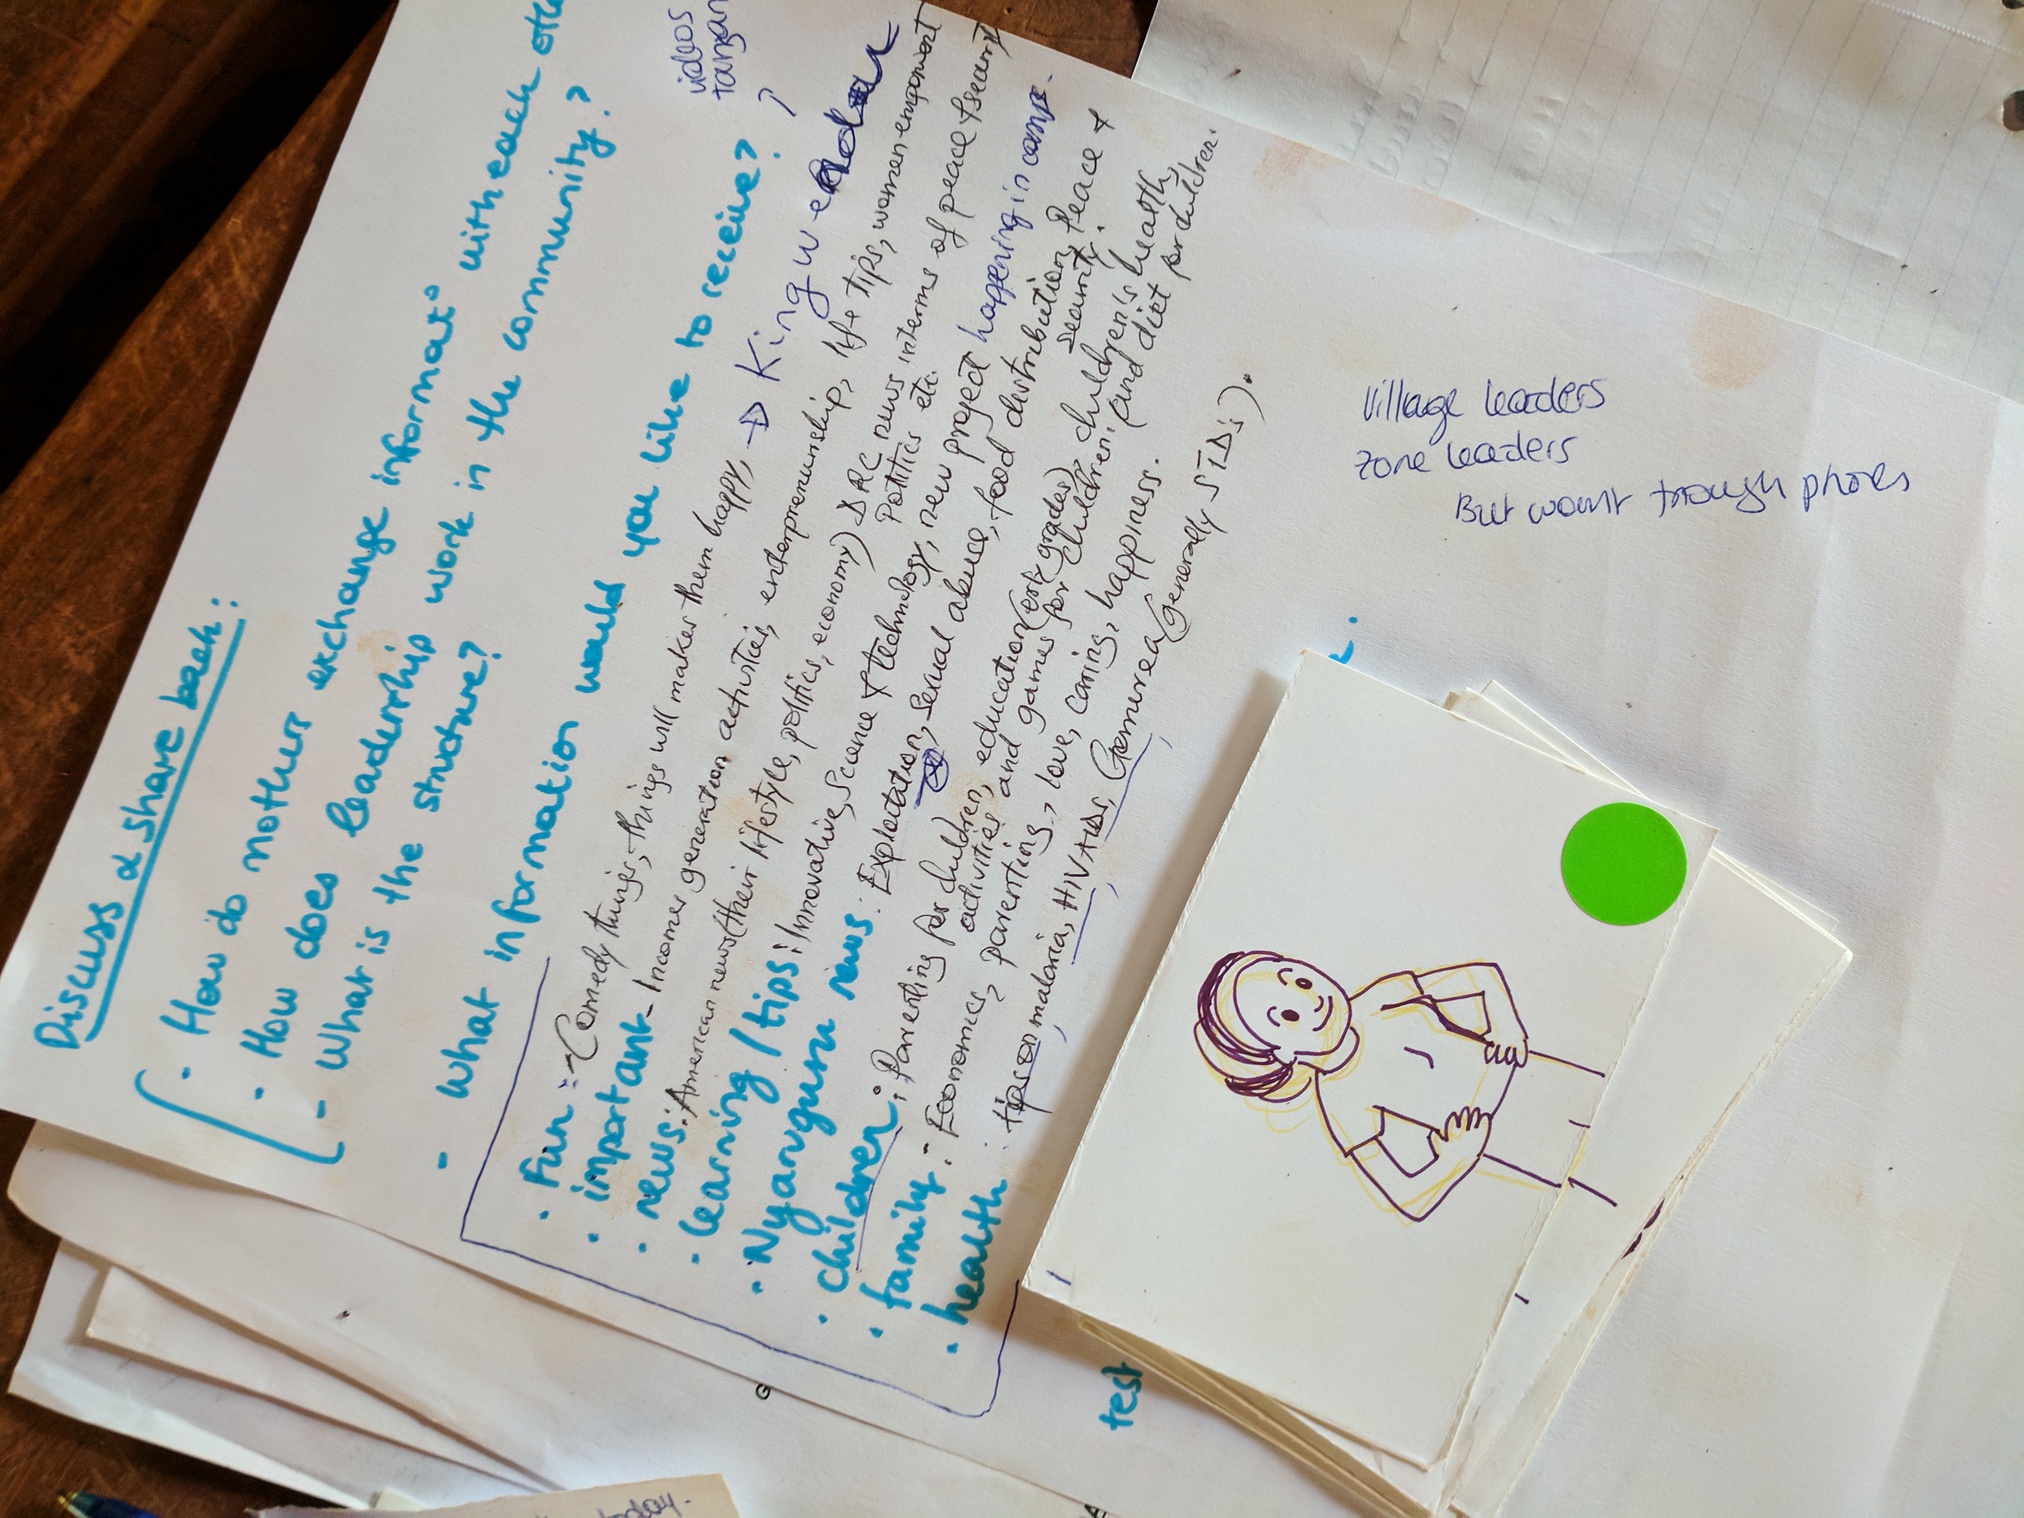 Discuss & share back:
· How do mothers exchange informat° with each
· How does leadership work in the community?
- What is the structure?
- What information would you like to receive?
videos
· Fun :- Comedy things, things will makes them happy, → Kingwendu
· important - Incomes generation activities, enterpreneurship, life tips, women empowerment
· news: American news (their lifestyle, politics, economy) DRC news interms of peace & security
Politics etc.
· learning / tips: Innovative, Science & technology, new project happening in camp.
· Nyarugusu news: Exploitation, sexual abuse, food distribution, Peace &
security.
· children: Parenting for children, education (ert grades), children's health,
activities and games for children. (and diet for children.
· family:- Economics, parenting, love, caring, happiness.
· health: tips on malaria, HIV/AIDS, Gornurea (generally STDs).
Village leaders
zone leaders
But wount trough phones
test
1
G
today.